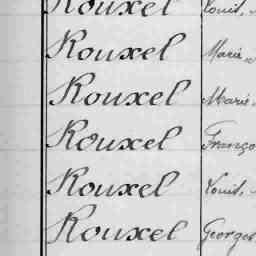 Rouxel Louis,
Rouxel Marie
Rouxel Marie
Rouxel Franço
Rouxel Louis,
Rouxel Georges